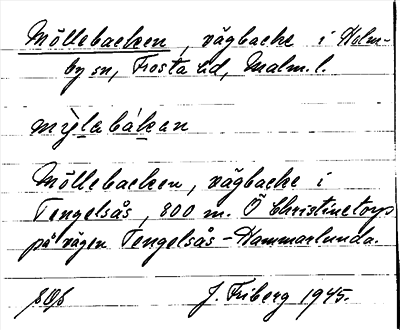 Möllebacken, vägbacke i Holm-
by sn, Frosta hd, Malm. l.
mỳlabákan
Möllebacken, vägbacke i
Tengelsås, 800 m. Ö Christinetorp
på vägen Tengelsås-Hammarlunda.
J. Friberg 1945.